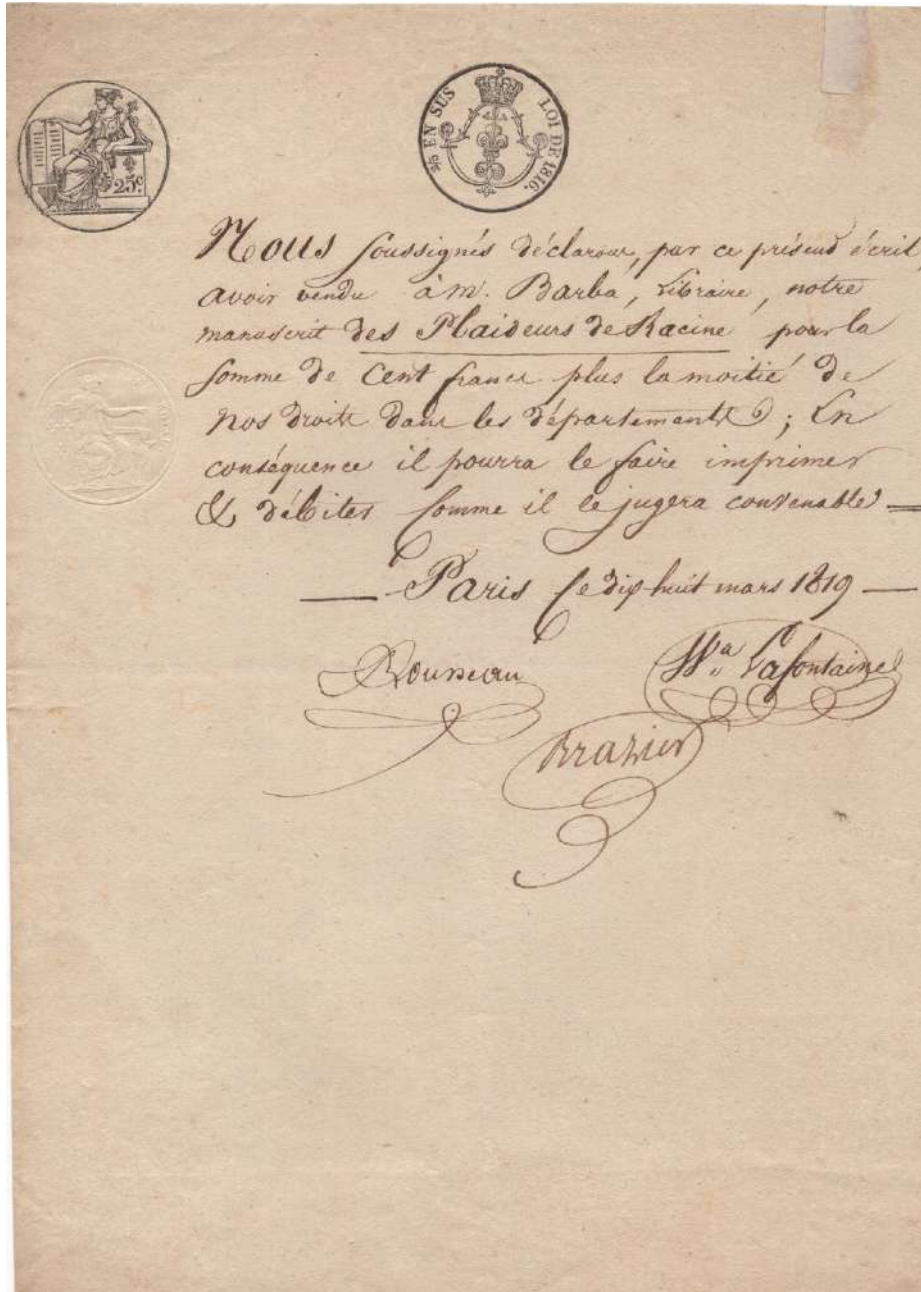 25c.
EN SUS LOI DE 1816.
Nous soussignés déclarons, par ce présent écrit
avoir vendu à m. Barba, Libraire, notre
manuscrit des Plaideurs de Racine pour la
somme de Cent francs plus la moitié de
nos droits dans les départements ; En
conséquence il pourra le faire imprimer
& débiter comme il le jugera convenable
Paris le dix huit mars 1819
Rousseau
Wa Lafontaine
Brazier